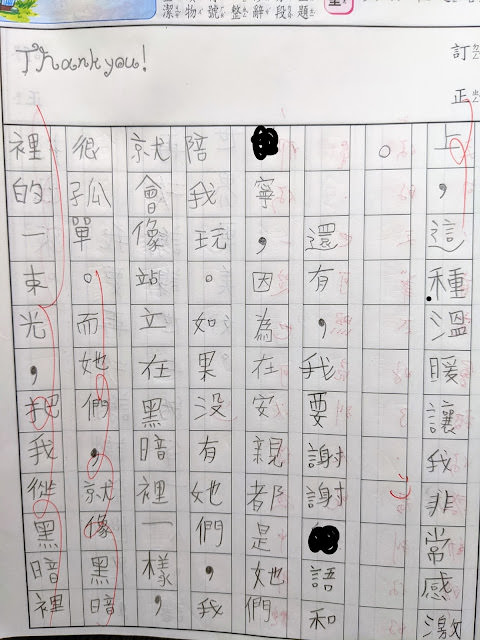 潔物號整辭段題
Thank you!
訂正
上，這種溫暖讓我非常感激
。
還有，我要謝謝語和
寧，因為在安親都是她們
陪我玩。如果沒有她們，我
就會像站立在黑暗裡一樣，
很孤單。而她們，就像黑暗
裡的一束光，把我從黑暗裡